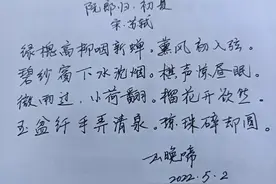 阮郎归·初夏
宋·苏轼
绿槐高柳咽新蝉。薰风初入弦。
碧纱窗下水沉烟。棋声惊昼眠。
微雨过,小荷翻。榴花开欲然。
玉盆纤手弄清泉。琼珠碎却圆。
晚啼
2022.5.2